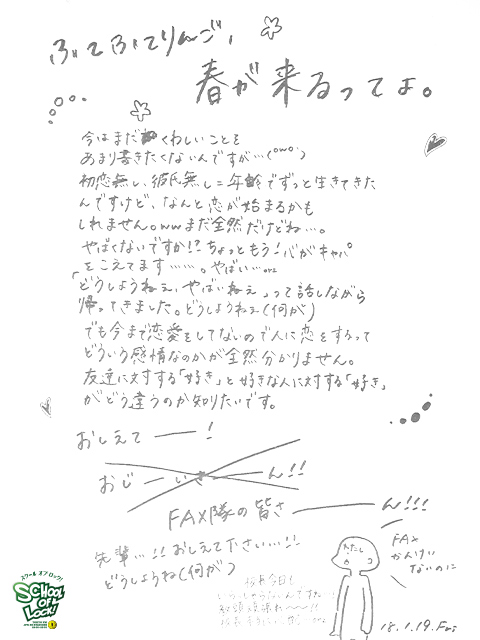 ふてふてりんご、
春が来るってよ。
今はまだくわしいことを
あまり書きたくないんですが…(°ω°)
初恋無し、彼氏無し=年齢でずっと生きてきた
んですけど、なんと恋が始まるかも
しれません。wwまだ全然だけどね…。
やばくないですか!?ちょっともう!心がキャパ
をこえてます……。やばい…orz
「どうしようねぇ、やばいねぇ」って話しながら
帰ってきました。どうしようねぇ(何が)
でも今まで恋愛をしてないので人に恋をするって
どういう感情なのかが全然分かりません。
友達に対する「好き」と好きな人に対する「好き」
がどう違うのか知りたいです。
おしえてー!
おじーいさーん!!
FAX隊の皆さーん!!!
先輩…!!おしえて下さい…!!
どうしようね(何が)
わたし
FAX
かんけい
ないのに
校長今日も
18.1.19.Fri
スクール オブ ロック!
SCHOOL
OF
LOCK!